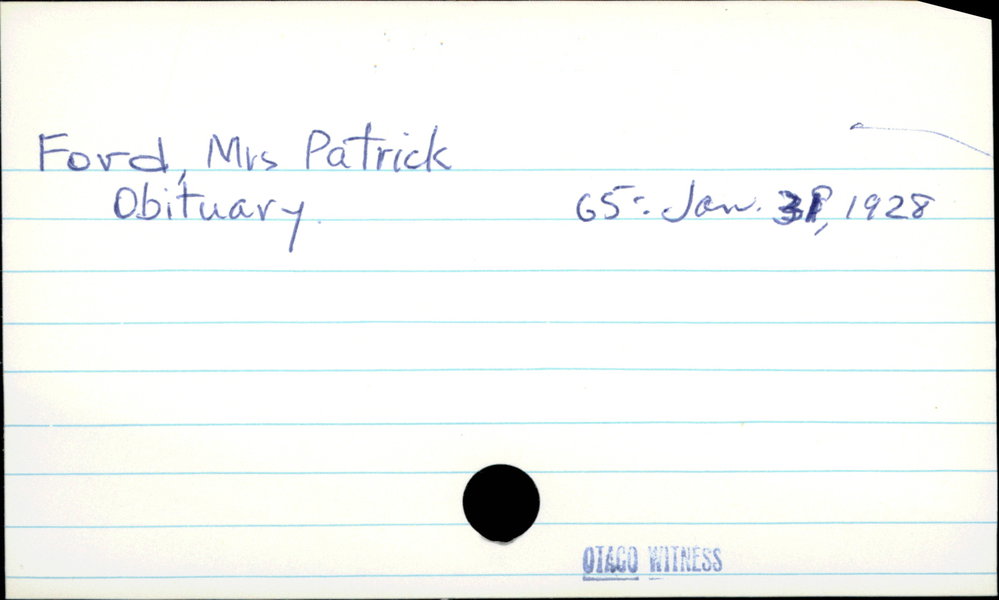 Ford, Mrs Patrick
Obituary. 65:. Jan. 31, 1928
OTAGO WITNESS